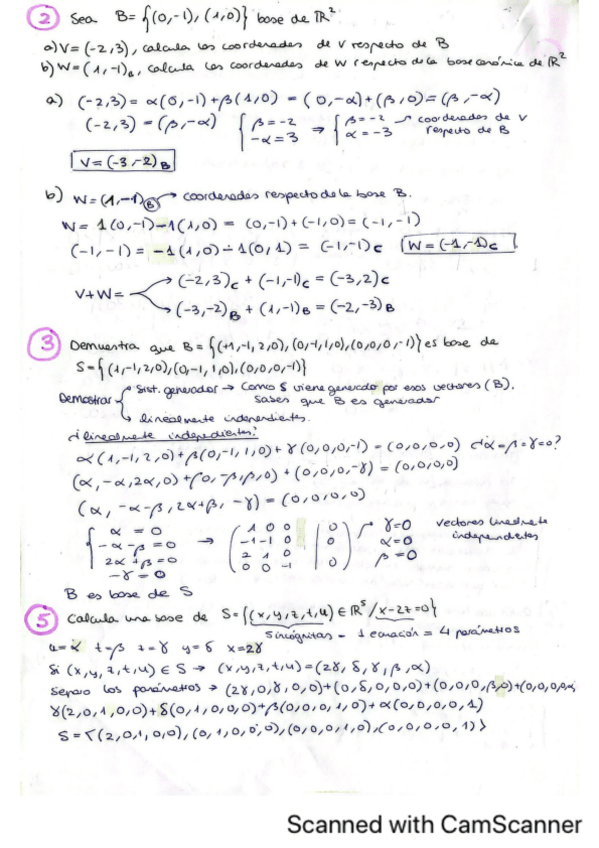 2 Sea B={(0,-1),(1,0)} base de ℝ²
a) V=(-2,3), calcula las coordenadas de v respecto de B
b) W=(1,-1)B, calcula las coordenadas de W respecto de la base canónica de ℝ²
a) (-2,3)=α(0,-1)+β(1,0)=(0,-α)+(β,0)=(β,-α)
(-2,3)=(β,-α) { β=-2 -α=3 ⇒ { β=-2 α=-3 coordenadas de v respecto de B
V=(-3,-2)B
b) W=(1,-1)B → coordenadas respecto de la base B.
W=1(0,-1)-1(1,0)=(0,-1)+(-1,0)=(-1,-1)
(-1,-1)=-1(1,0)-1(0,1)=(-1,-1)C W=(-1,-1)C
V+W= → (-2,3)C+(-1,-1)C=(-3,2)C
→ (-3,-2)B+(1,-1)B=(-2,-3)B
3 Demuestra que B={(+1,-1,2,0),(0,-1,1,0),(0,0,0,-1)} es base de
S={(1,-1,2,0),(0,-1,1,0),(0,0,0,-1)}
Demostrar Sist. generador → Como S viene generado por esos vectores (B).
Sabes que B es generador
linealmente independientes.
¿linealmente independientes?
α(1,-1,2,0)+β(0,-1,1,0)+γ(0,0,0,-1)=(0,0,0,0) ¿α=β=γ=0?
(α,-α,2α,0)+(0,-β,β,0)+(0,0,0,-γ)=(0,0,0,0)
(α,-α-β,2α+β,-γ)=(0,0,0,0)
α=0 1 0 0 0 γ=0 vectores linealmente
-α-β=0 → -1 -1 0 0 α=0 independientes
2α+β=0 2 1 0 β=0
-γ=0 0 0 -1 0
B es base de S
5 Calcula una base de S={(x,y,z,t,u)∈ℝ⁵/x-2z=0}
5 incógnitas - 1 ecuación = 4 parámetros
u=α t=β z=γ y=δ x=2γ
Si (x,y,z,t,u)∈S → (x,y,z,t,u)=(2γ,δ,γ,β,α)
Separo los parámetros → (2γ,0,γ,0,0)+(0,δ,0,0,0)+(0,0,0,β,0)+(0,0,0,0,α)
γ(2,0,1,0,0)+δ(0,1,0,0,0)+β(0,0,0,1,0)+α(0,0,0,0,1)
S=<(2,0,1,0,0),(0,1,0,0,0),(0,0,0,1,0),(0,0,0,0,1)>
Scanned with CamScanner